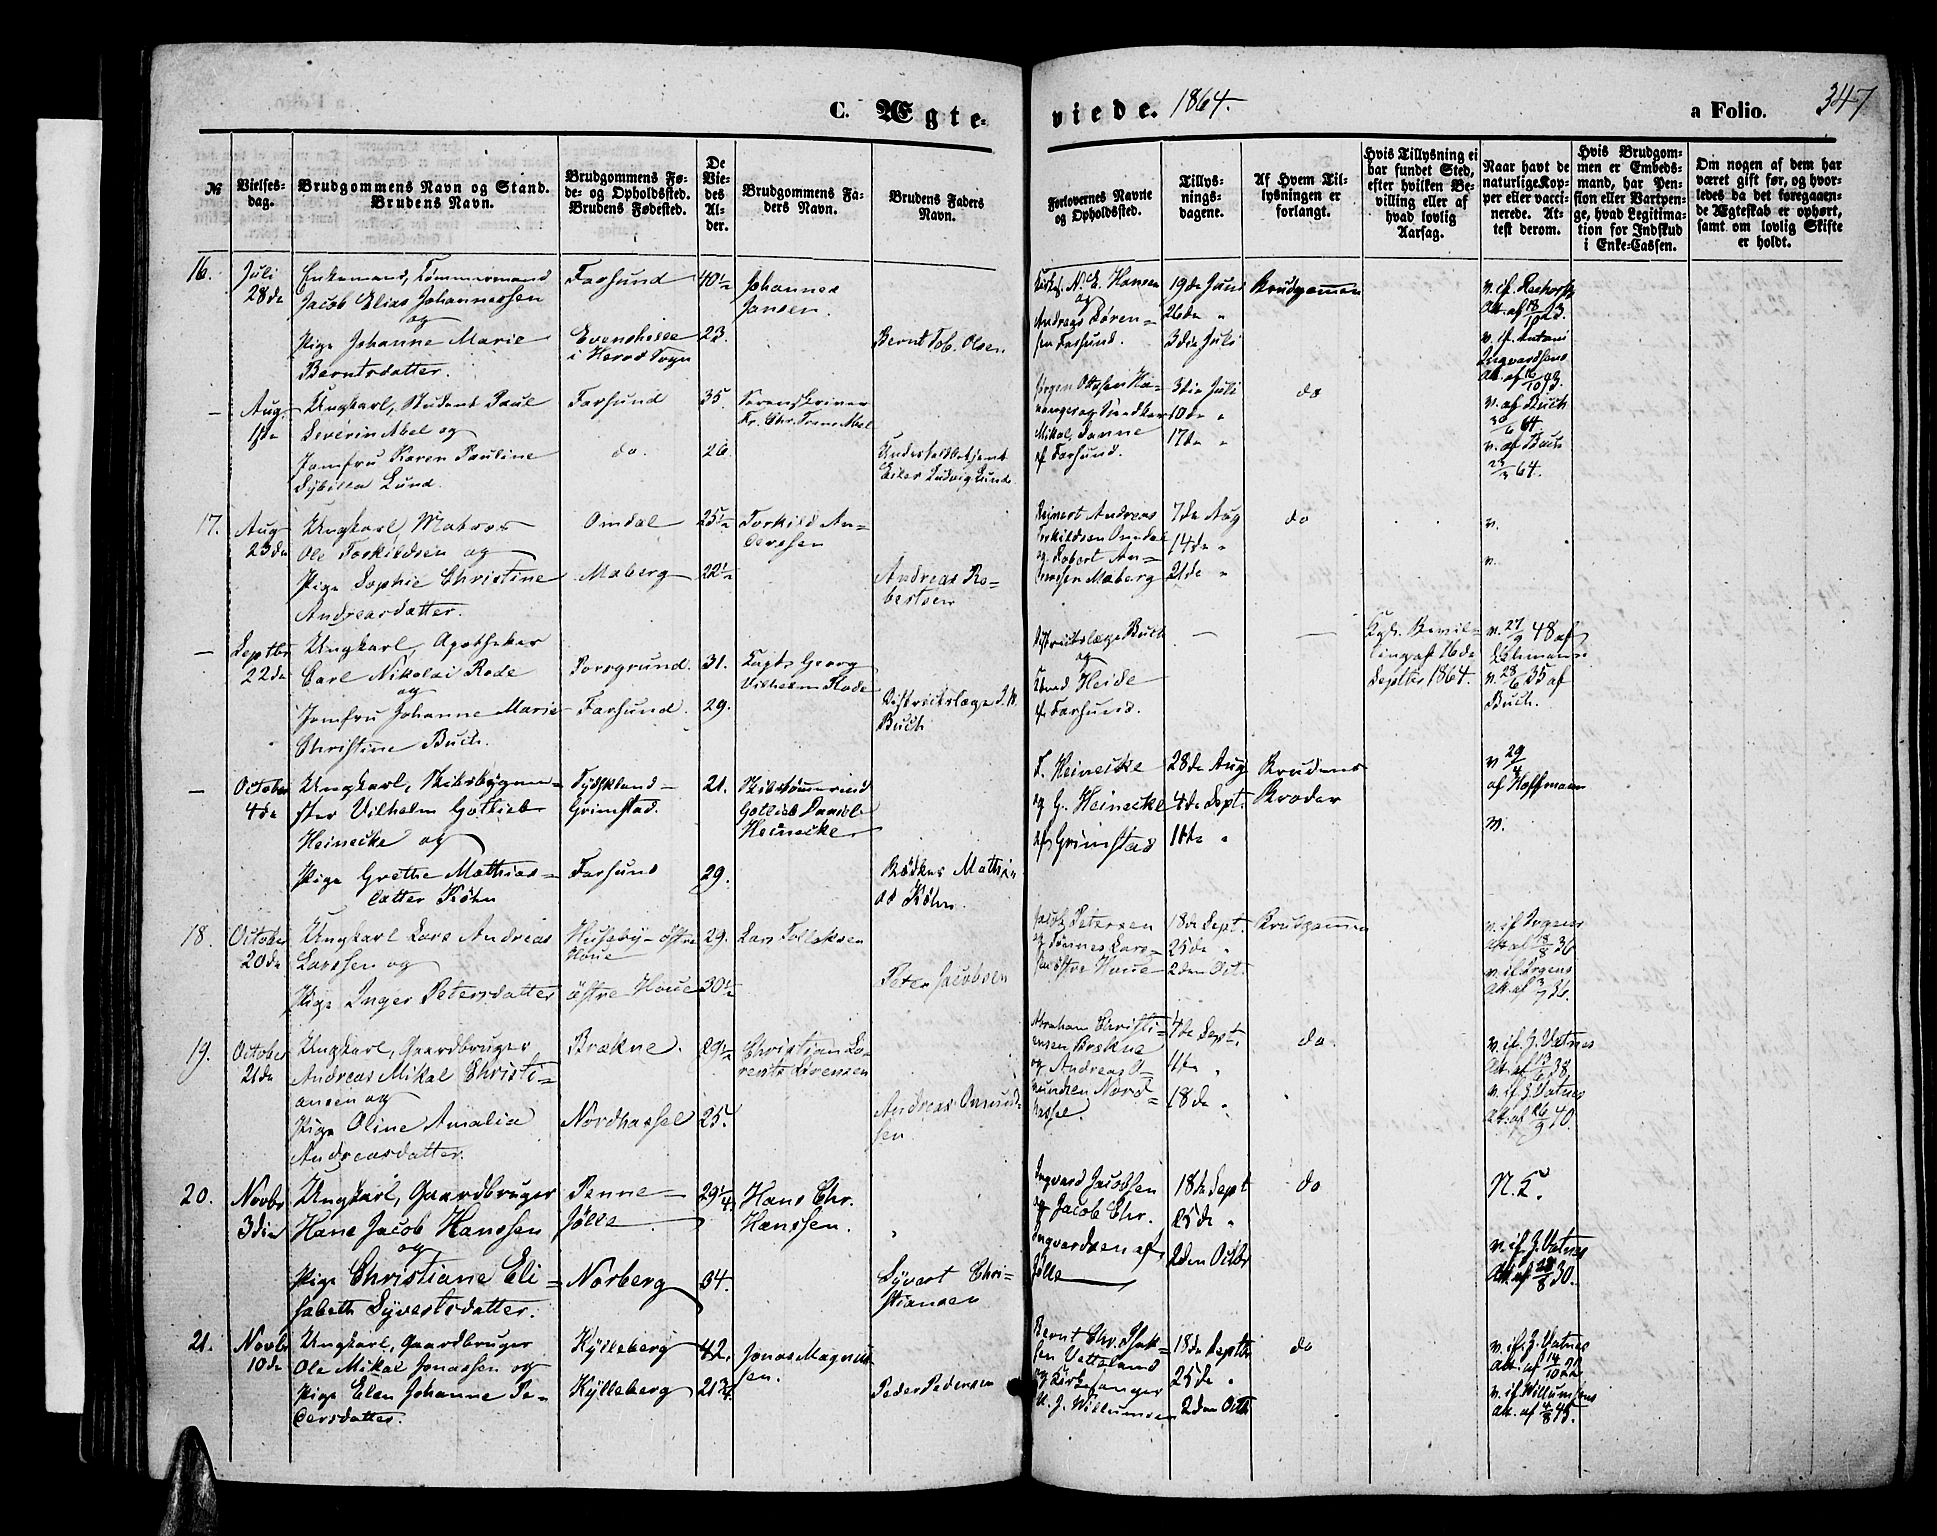 C. Ægte-
viede. 1864.
a Folio. 347
№
Vielses-
dag.
Brudgommens Navn og Stand.
Brudens Navn.
Brudgommens Fø-
de- og Opholdssted.
Brudens Fødested.
De
Vie-
des
Al-
der.
Brudgommens Fa-
ders Navn.
Brudens Faders
Navn.
Forlovernes Navne
og Opholdssted.
Tillys-
nings-
dagene.
Af Hvem Til-
lysningen er
forlangt.
Hvis Tillysning ei
har fundet Sted,
efter hvilken Be-
villing eller af
hvad lovlig
Aarsag.
Naar havt de
naturlige Kop-
per eller vacci-
nerede. At-
test derom.
Hvis Brudgom-
men er Embeds-
mand, har Pen-
sion eller Vartpen-
ge, hvad Legitima-
tion for Indskud
i Enke-Cassen.
Om nogen af dem har
været gift før, og hvor-
ledes da det foregaaen-
de Ægteskab er ophørt,
samt om lovlig Skifte
er holdt.
16.
Juli
28de
Enkemand, Tømmermand
Jacob Elias Johannessen
og
Pige Johanne Marie
Berntsdatter.
Farsund
i Herred Sogn
40½
23.
Johannes
Jansen.
Bernt Tob. Olsen
N. E. Hansen
og
Andreas Søren-
sen Farsund.
19de Juni
26de "
3die Juli
Brudgommen
Att. af 18/10 23.
—
Aug.
1ste
Ungkarl, Student Poul
Severin Abel og
Jomfru Karen Pauline
Sybilla Lund.
Farsund
do.
35.
26.
Sorenskriver
Fr. Chr. Abel
Eiler Ludvig Lund
Jørgen Ottesen
af Farsund.
3die Juli
10de "
17de "
do
v. af Buch
30/6 64.
v. af Buch
23/7 64.
17.
Aug
23de
Ungkarl, Matros
Ole Torkildsen og
Pige Sophie Christine
Andreasdatter.
Omdal
Maberg
25½
22½
Torkild An-
derssen
Andreas Ro-
bertsen
Reinert Andreas
Torkildsen Omdal
og Robert An-
dreassen Maberg
7de Aug
14de "
21de "
do
v.
v.
—
Septbr
22de
Ungkarl, Apotheker
Carl Nikolai Rode
og
Jomfru Johanne Marie
Christine Buch.
Porsgrund.
Farsund.
31.
29.
Georg
Vilhelm Rode
Districtslæge
Buch
Districtslæge Buch
og
Heide
af Farsund.
—
—
Kgl. Bevil-
ling af 16de
Septbr 1864.
v. 27/9 48 af
v. 28/6 35 af
Buch.
—
October
4de
Ungkarl, Skibsbygme-
ster Vilhelm Gotlieb
Heinecke og
Pige Grethe Mathias-
datter Köhn
Tydskland-
Grimstad.
Farsund
21.
29.
Skibstømmermand
Gotlieb Daniel
Heinecke
Bødker Mathi-
as Köhn.
F. Heinecke
og G. Heinecke
af Grimstad
28de Aug
4de Sept.
11te "
Brudens
Broder
v 29/4
af Hoffmann
v.
18.
October
20de
Ungkarl Lars Andreas
Larssen og
Pige Inger Petersdatter
Huseby-østre
Houe
østre Houe
29.
30½
Lars Tollaksen
Peter Jacobsen
Jacob Petersen
og Tønnes Lars-
sen østre Houe
18de Sept.
25de "
2den Oct.
Brudgommen
Att. af 18/8 36
Att. af 3/7 36.
19.
October
21de
Ungkarl, Gaardbruger
Andreas Mikal Christi-
ansen og
Pige Oline Amalia
Andreasdatter.
Brækne.
Nordhassel
29½
25.
Christian Lo-
rents Sørensen
Andreas Omund-
sen.
Abraham Christi-
ansen Brekne
og Andreas O-
mundsen Nord-
hassel.
4de Sept.
11te "
18de "
do.
v. if. J. Vatnes
Att. af 13/6 38.
v. if. J. Vatnes
Att. af 26/9 40.
20.
Novbr
3die
Ungkarl, Gaardbruger
Hans Jacob Hanssen
og
Pige Christiane Eli-
sabeth Syvertsdatter.
Penne-
Jølle
Norberg
29¼
34.
Hans Chr.
Hanssen.
Syvert Chri-
stiansen
Ingvard Jacobsen
og Jacob Chr.
Ingvardsen af
Jølle
18de Sept
25de "
2den Octbr
do
N. E.
v. if. J. Vatnes
Att. af 28/8 30.
21.
Novbr
10de
Ungkarl, Gaardbruger
Ole Mikal Jonassen og
Pige Elen Johanne Pe-
dersdatter.
Kylleberg
Kylleberg
42.
21¾
Jonas Magnus-
sen.
Peder Pedersen
Bernt Chr. Isak-
sen Vetteland
og Kirkesanger
U. J. Willumsen
18de Septbr
25de "
2den Octb
do
v. if. J. Vatnes
Att. af 14/10 22
v. if. Willumsens
Att. af 4/8 45.